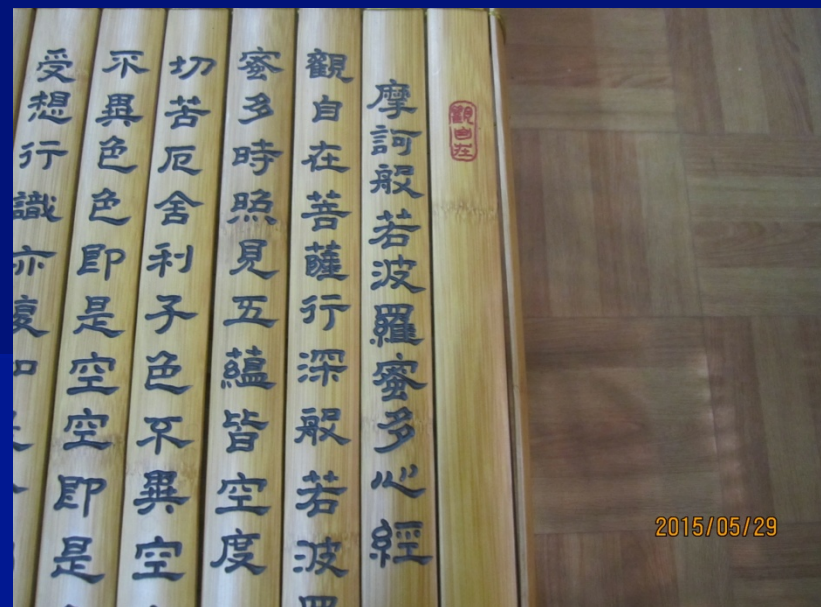 觀自在
摩訶般若波羅蜜多心經
觀自在菩薩行深般若波羅
蜜多時照見五蘊皆空度
切苦厄舍利子色不異空
不異色色即是空空即是
受想行識亦復如是
2015/05/29